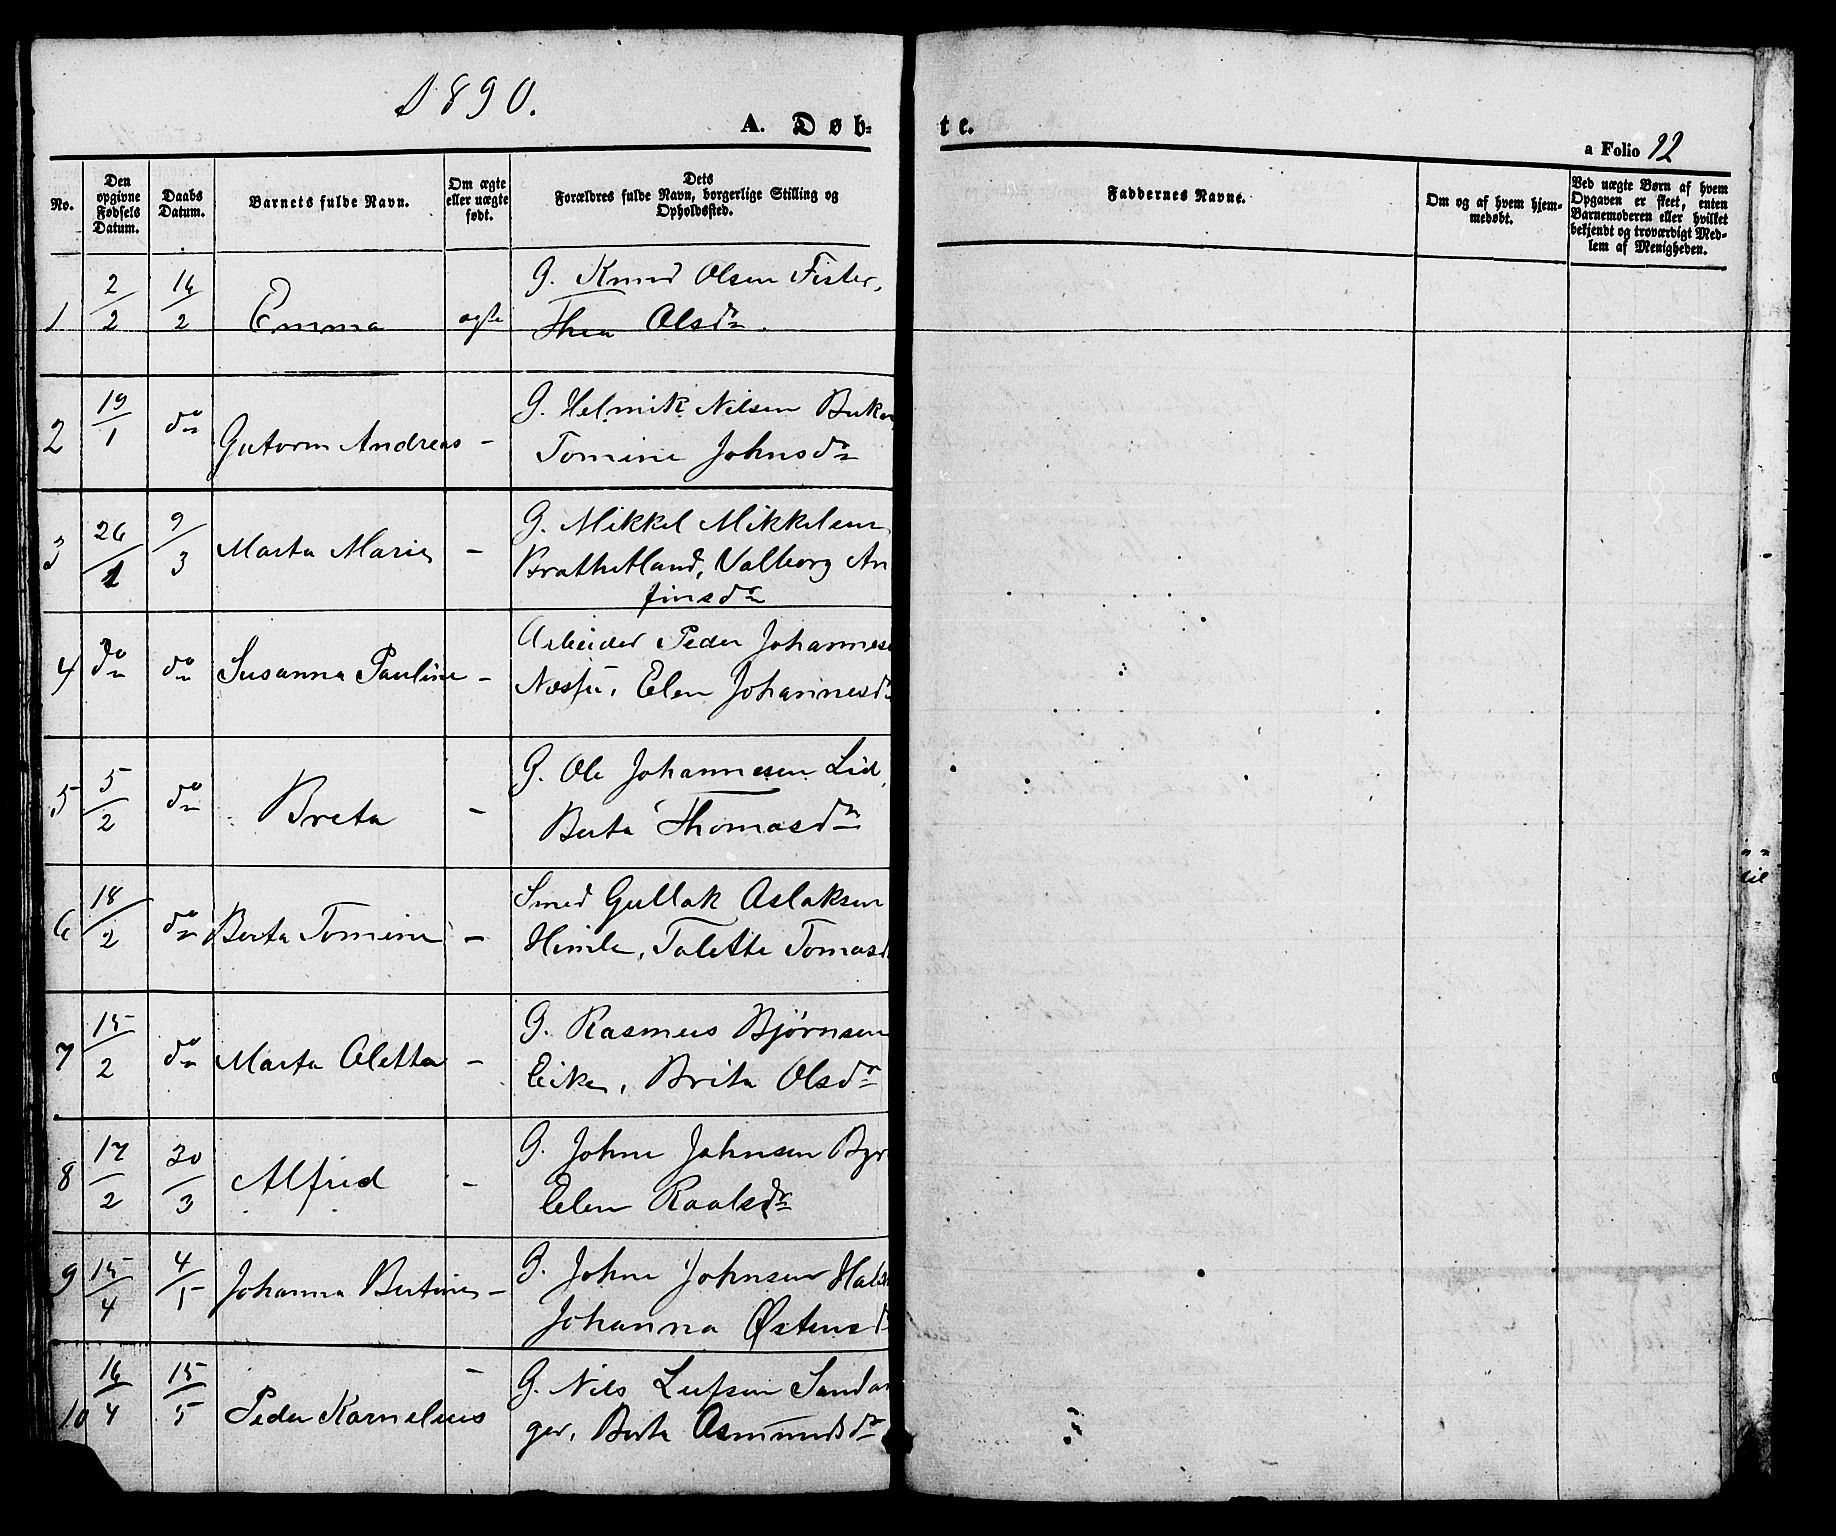 1890.
A. Døb-
te.
a Folio 12
No.
Den
opgivne
Fødsels
Datum.
Daabs
Datum.
Barnets fulde Navn.
Om ægte
eller uægte
født.
Dets
Forældres fulde Navn, borgerlige Stilling og
Opholdssted.
Faddernes Navne.
Om og af hvem hjem-
medøbt.
Ved uægte Børn af hvem
Opgaven er skeet, enten
Barnemoderen eller hvilket
bekjendt og troværdigt Med-
lem af Menigheden.
1 2/2 16/2 Emma ægte G. Knud Olsen Fister,
Thea Olsdr.
2 19/1 do Gutorm Andreas - G. Helmik Nilsen
Tomine Johnsdr
3 26/1 9/3 Marta Marie - G. Mikkel Mikkelsen
Brathetland, Valborg An
finsdr
4 do do Susanna Pauline - Arbeider Peder Johannes
Elen Johannesd
5 5/2 do Breta - G. Ole Johannesen Lid,
Berta Thomasdr
6 18/2 do Berta Tomine - Smed Gullak Aslaksen
Himle, Talette Tomasd
7 15/2 do Marta Aletta - G. Rasmus Bjørnsen
Eike, Brita Olsdr
8 17/2 30/3 Alfred - G. Johne Johnsen
Elen Roalsdr
9 15/4 4/5 Johanna Bertine - G. Johne Johnsen
Johanna Østensd
10 16/4 15/5 Peder Kornelius - G. Nils Leifsen Sandan
ger, Berta Asmundsdr
til